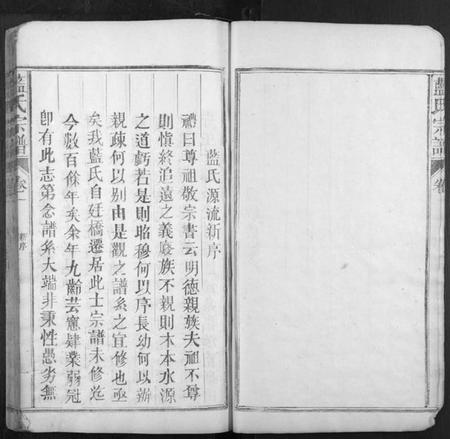 藍氏宗譜
卷
藍氏源流新序
禮曰尊祖敬宗書云明德親族夫祖不尊
則慎終追遠之義廢族不親則木本水源
之道虧若是則昭穆何以序長幼何以辨
親疎何以別由是觀之譜系之宜修也亟
矣我藍氏自廷橋遷居此土宗譜未修迄
今數百餘年矣余年九齡芸窻肄業弱冠
卽有此志第念譜系大端非秉性愚劣無
藍氏宗譜
卷一
新序